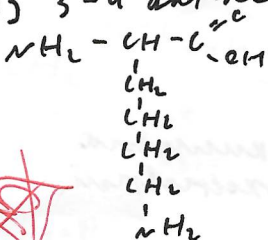 NH2 - CH - C = O
- OH
CH2
CH2
CH2
CH2
NH2